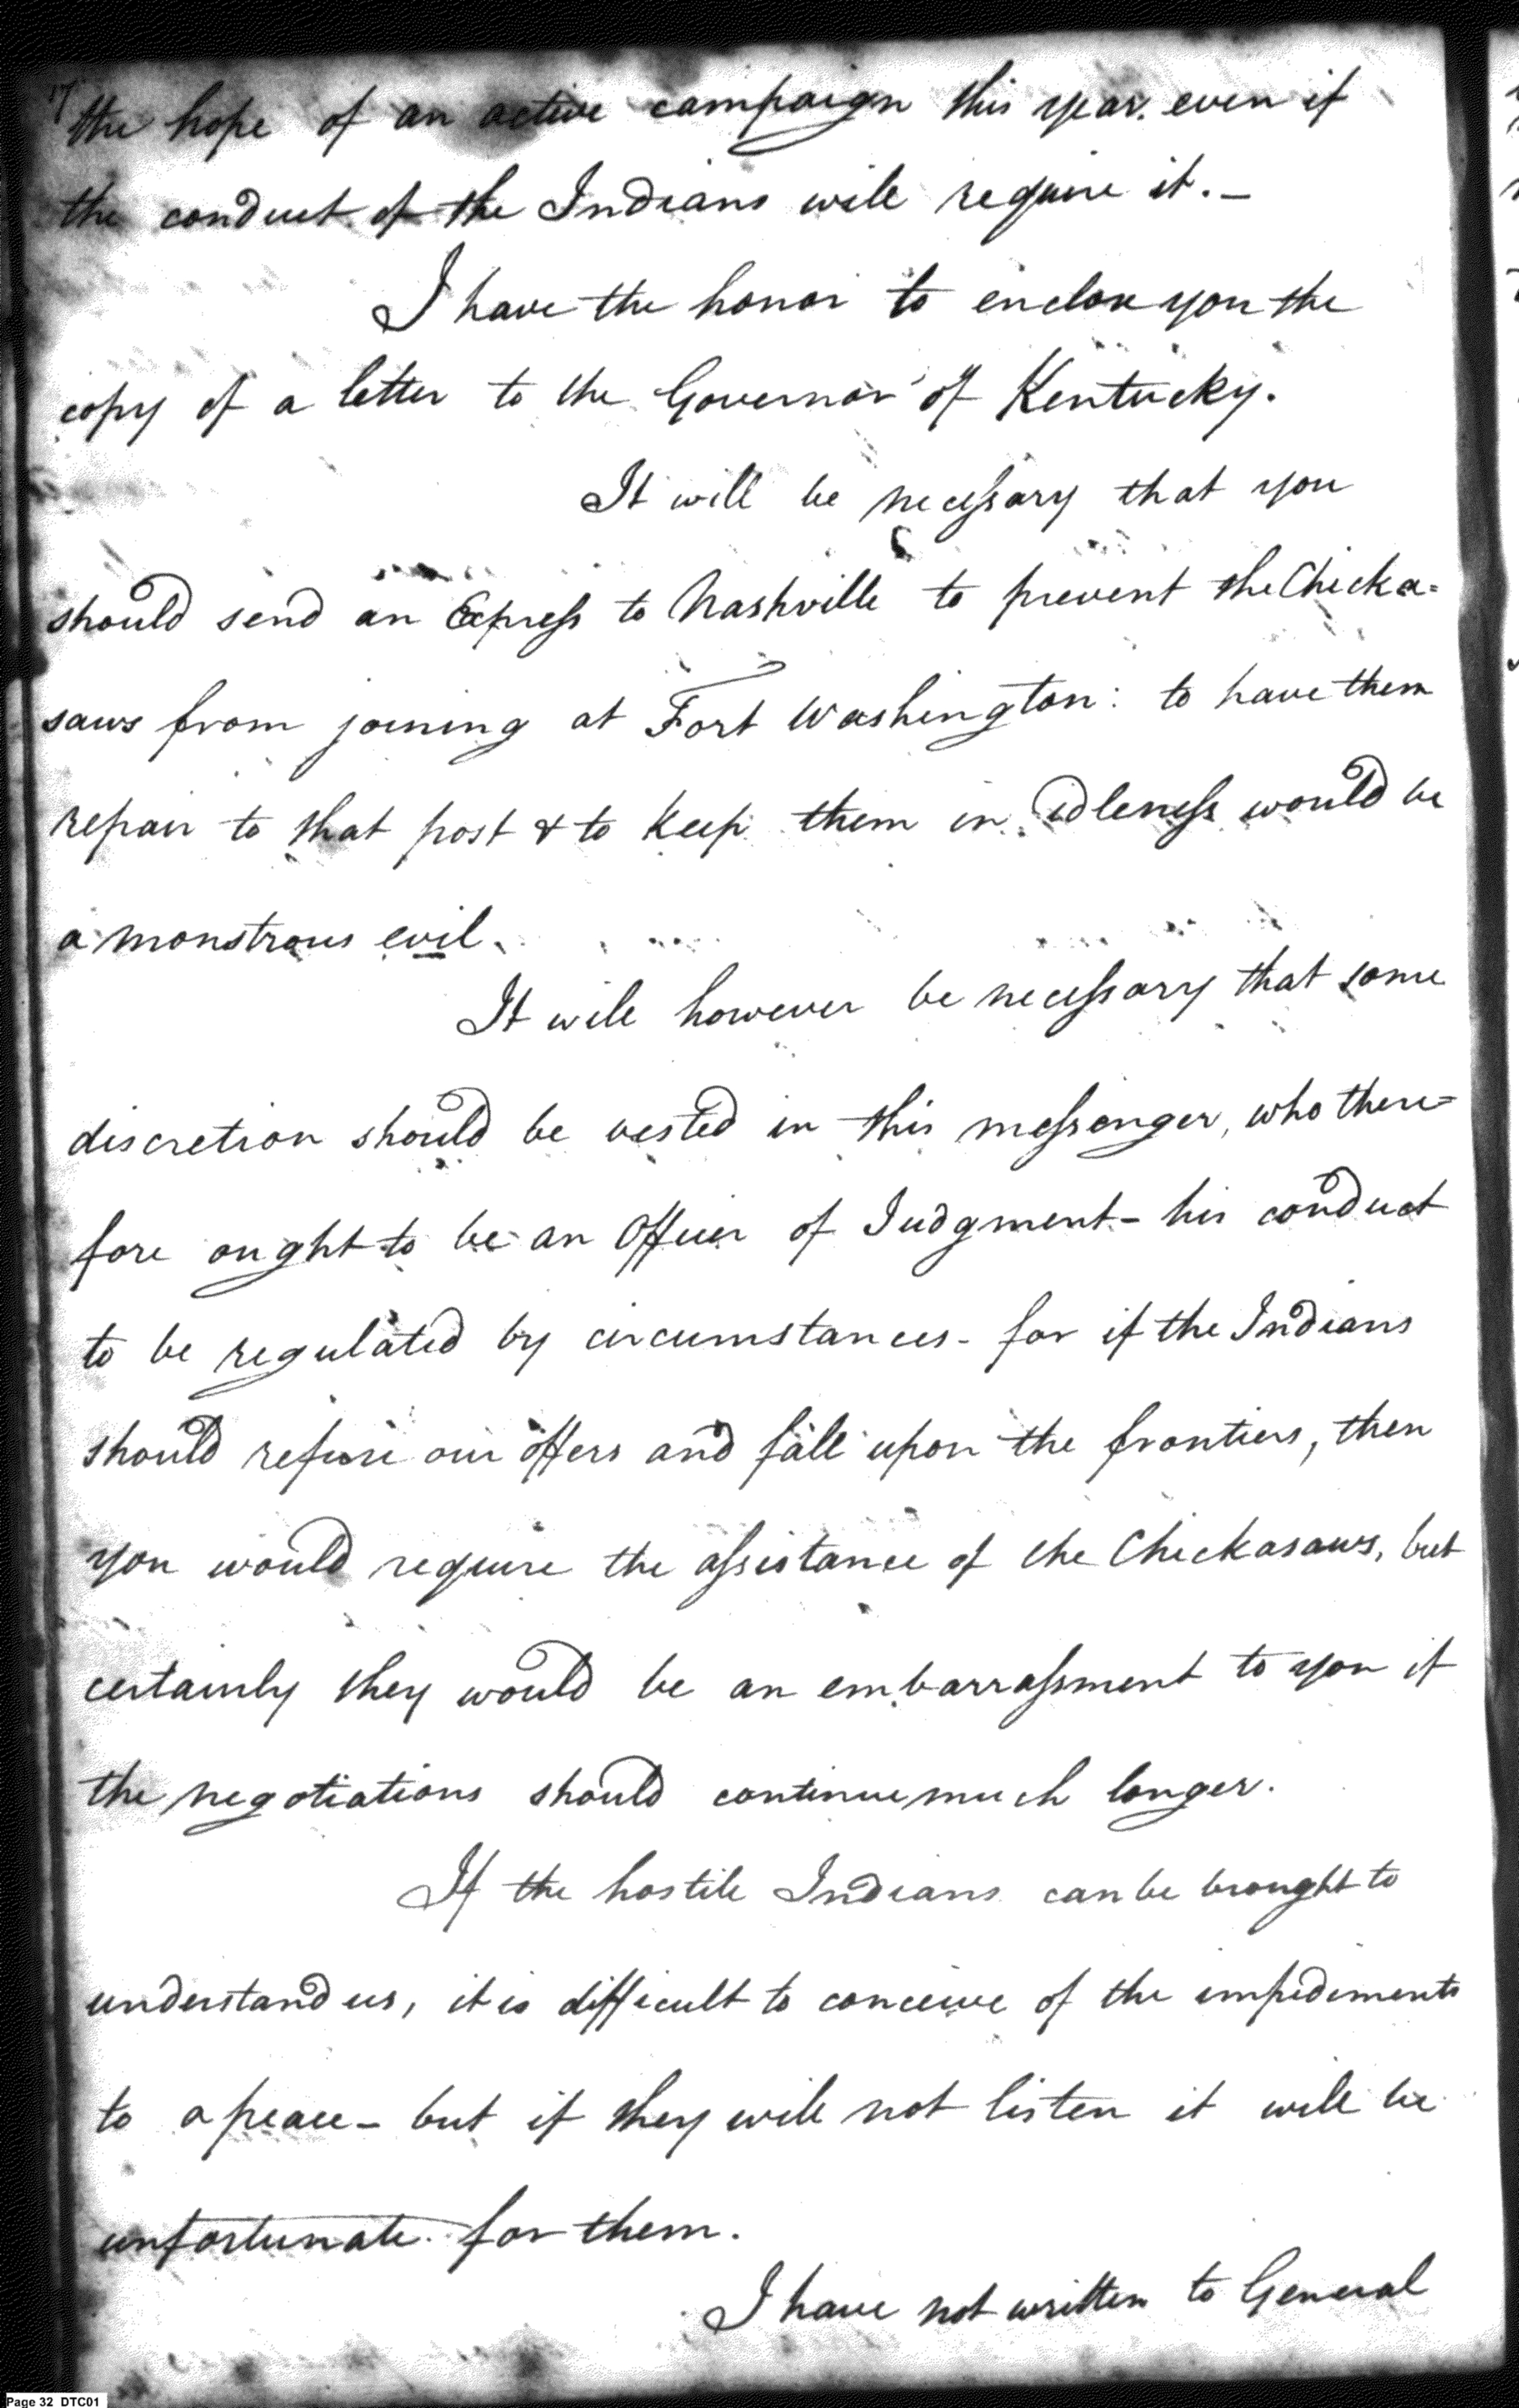 17
the hope of an active campaign this year. even if
the conduct of the Indians will require it. –
I have the honor to enclose you the
copy of a letter to the Governor of Kentucky.
It will be necessary that you
should send an Express to Nashville to prevent the Chicka=
saws from joining at Fort Washington: to have them
repair to that post & to keep them in idleness would be
a monstrous evil.
It will however be necessary that some
discretion should be vested in this messenger, who there=
fore ought to be an Officer of Judgment – his conduct
to be regulated by circumstances – for if the Indians
should refuse our offers and fall upon the frontiers, then
you would require the assistance of the Chickasaws, but
certainly they would be an embarrassment to you if
the negotiations should continue much longer.
If the hostile Indians can be brought to
understand us, it is difficult to conceive of the impediments
to a peace – but if they will not listen it will be
unfortunate for them.
I have not written to General
Page 32 DTC01